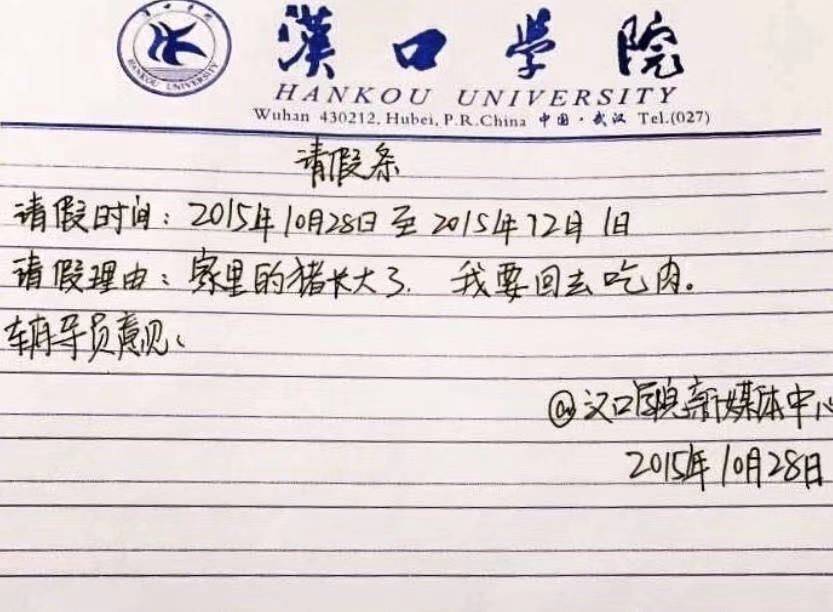 漢口學院
HANKOU UNIVERSITY
HANKOU UNIVERSITY
Wuhan 430212, Hubei, P.R.China 中国·武汉 Tel.(027)
请假条
请假时间：2015年10月28日至2015年12月1日
请假理由：家里的猪长大了. 我要回去吃肉。
辅导员意见：
@汉口学院新媒体中心
2015年10月28日